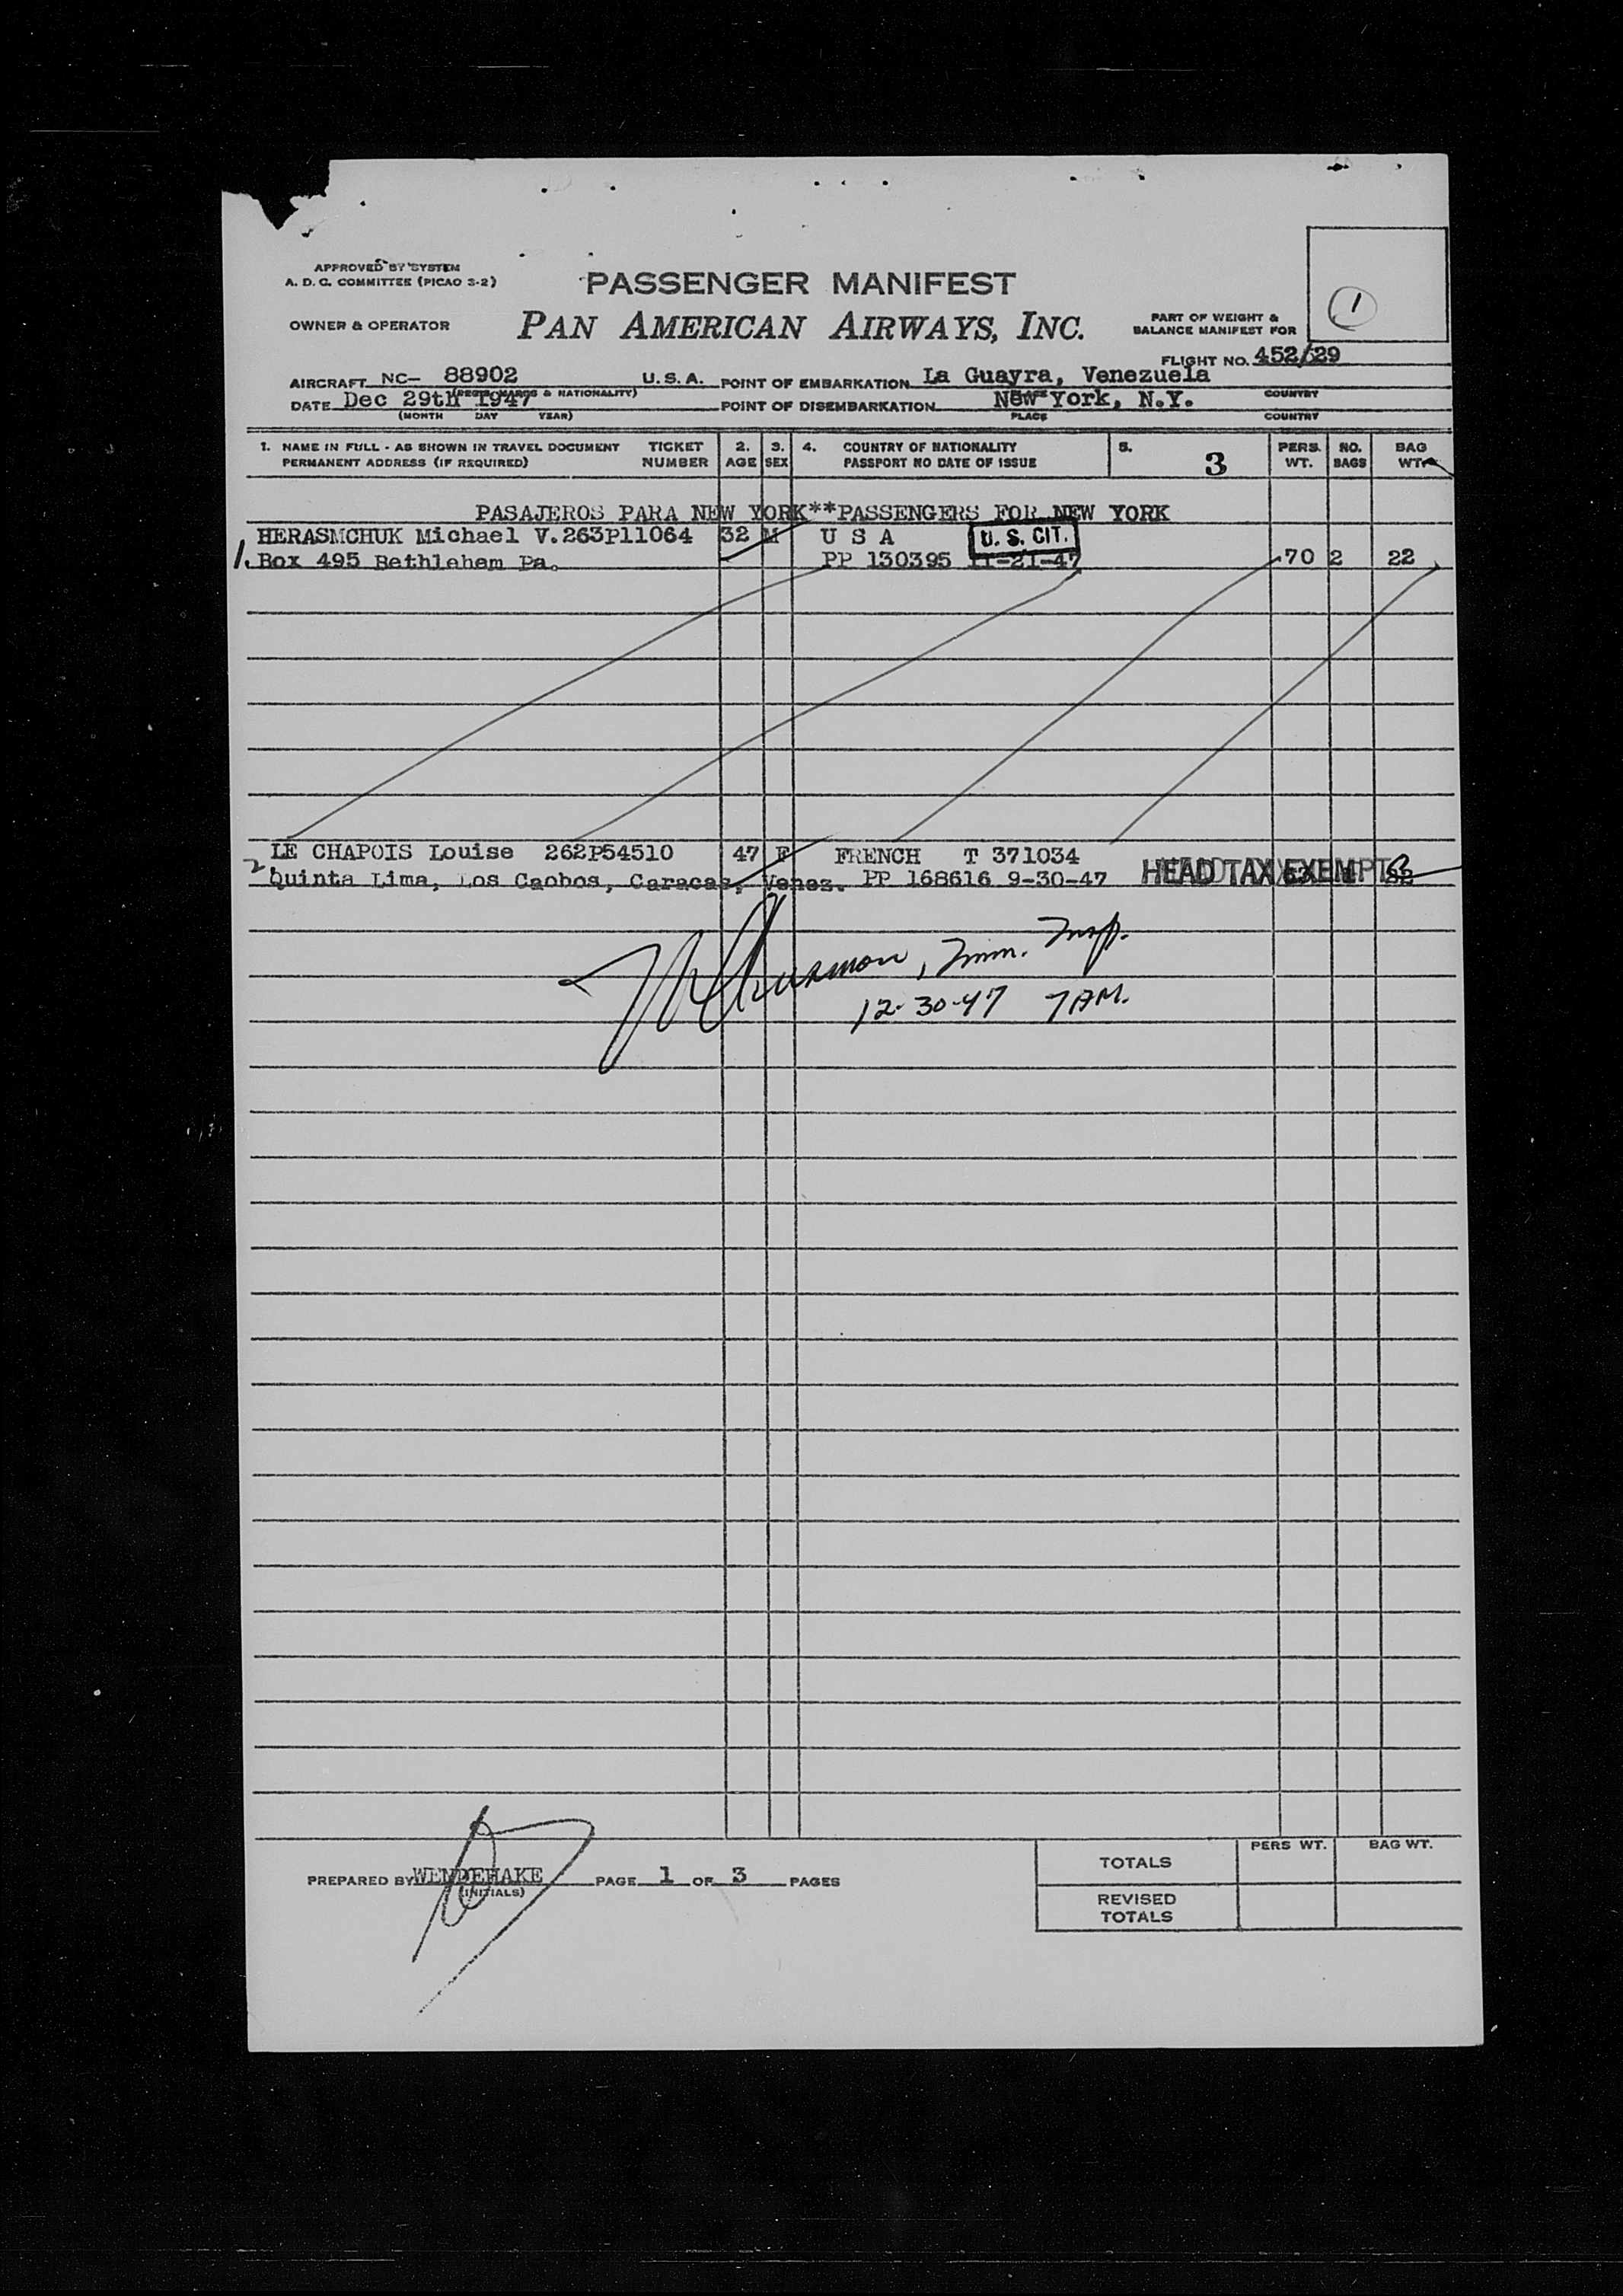 APPROVED BY SYSTEM
A. D. C. COMMITTEE (PICAO 3-2)
PASSENGER MANIFEST
1
OWNER & OPERATOR PAN AMERICAN AIRWAYS, INC.
PART OF WEIGHT &
BALANCE MANIFEST FOR
FLIGHT NO. 452/29
AIRCRAFT NC- 88902 U.S.A. POINT OF EMBARKATION La Guayra, Venezuela
(REGIS. MARKS & NATIONALITY) COUNTRY
DATE Dec 29th 1947 POINT OF DISEMBARKATION New York, N.Y.
(MONTH DAY YEAR) PLACE COUNTRY
1. NAME IN FULL - AS SHOWN IN TRAVEL DOCUMENT TICKET 2. 3. 4. COUNTRY OF NATIONALITY 5. 3 PERS. NO. BAG
PERMANENT ADDRESS (IF REQUIRED) NUMBER AGE SEX PASSPORT NO DATE OF ISSUE WT. BAGS WT.
PASAJEROS PARA NEW YORK**PASSENGERS FOR NEW YORK
HERASMCHUK Michael V.263P11064 32 M U S A U. S. CIT.
1. Box 495 Bethlehem Pa. PP 130395 11-21-47 70 2 22
LE CHAPOIS Louise 262P54510 47 F FRENCH T 371034
2 Quinta Lima, Los Caobos, Caracas, Venez. PP 168616 9-30-47 HEAD TAX EXEMPT
, Imm. Insp.
12-30-47 7 AM.
PREPARED BY WENDEHAKE PAGE 1 OF 3 PAGES
(INITIALS)
PERS WT. BAG WT.
TOTALS
REVISED
TOTALS